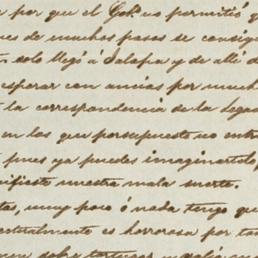 por que el Gob.º us permitió q
es de muchos pasos se consigu
solo llegó á Jalapa y de allí d
esperar con ancias por mucho
la correspondencia de la lega
en los que por supuesto no entr
pues ya puedes imaginártelo,
nuestra mala suerte.
tas, muy poco ó nada tengo que
actualmente es horrorosa por ta
sobre